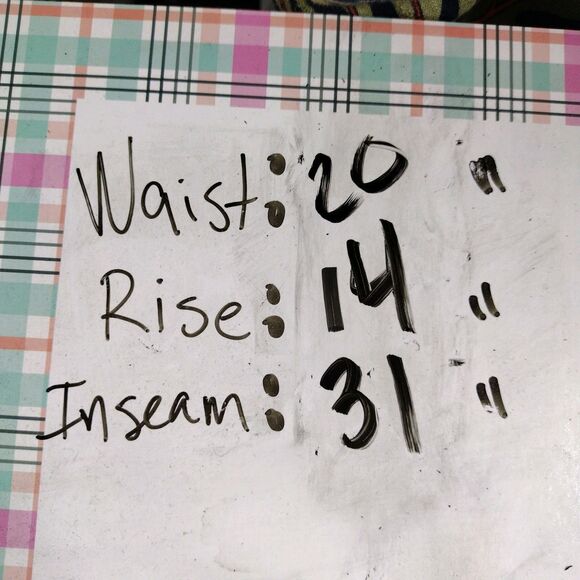 Waist: 20 "
Rise: 14 "
Inseam: 31 "